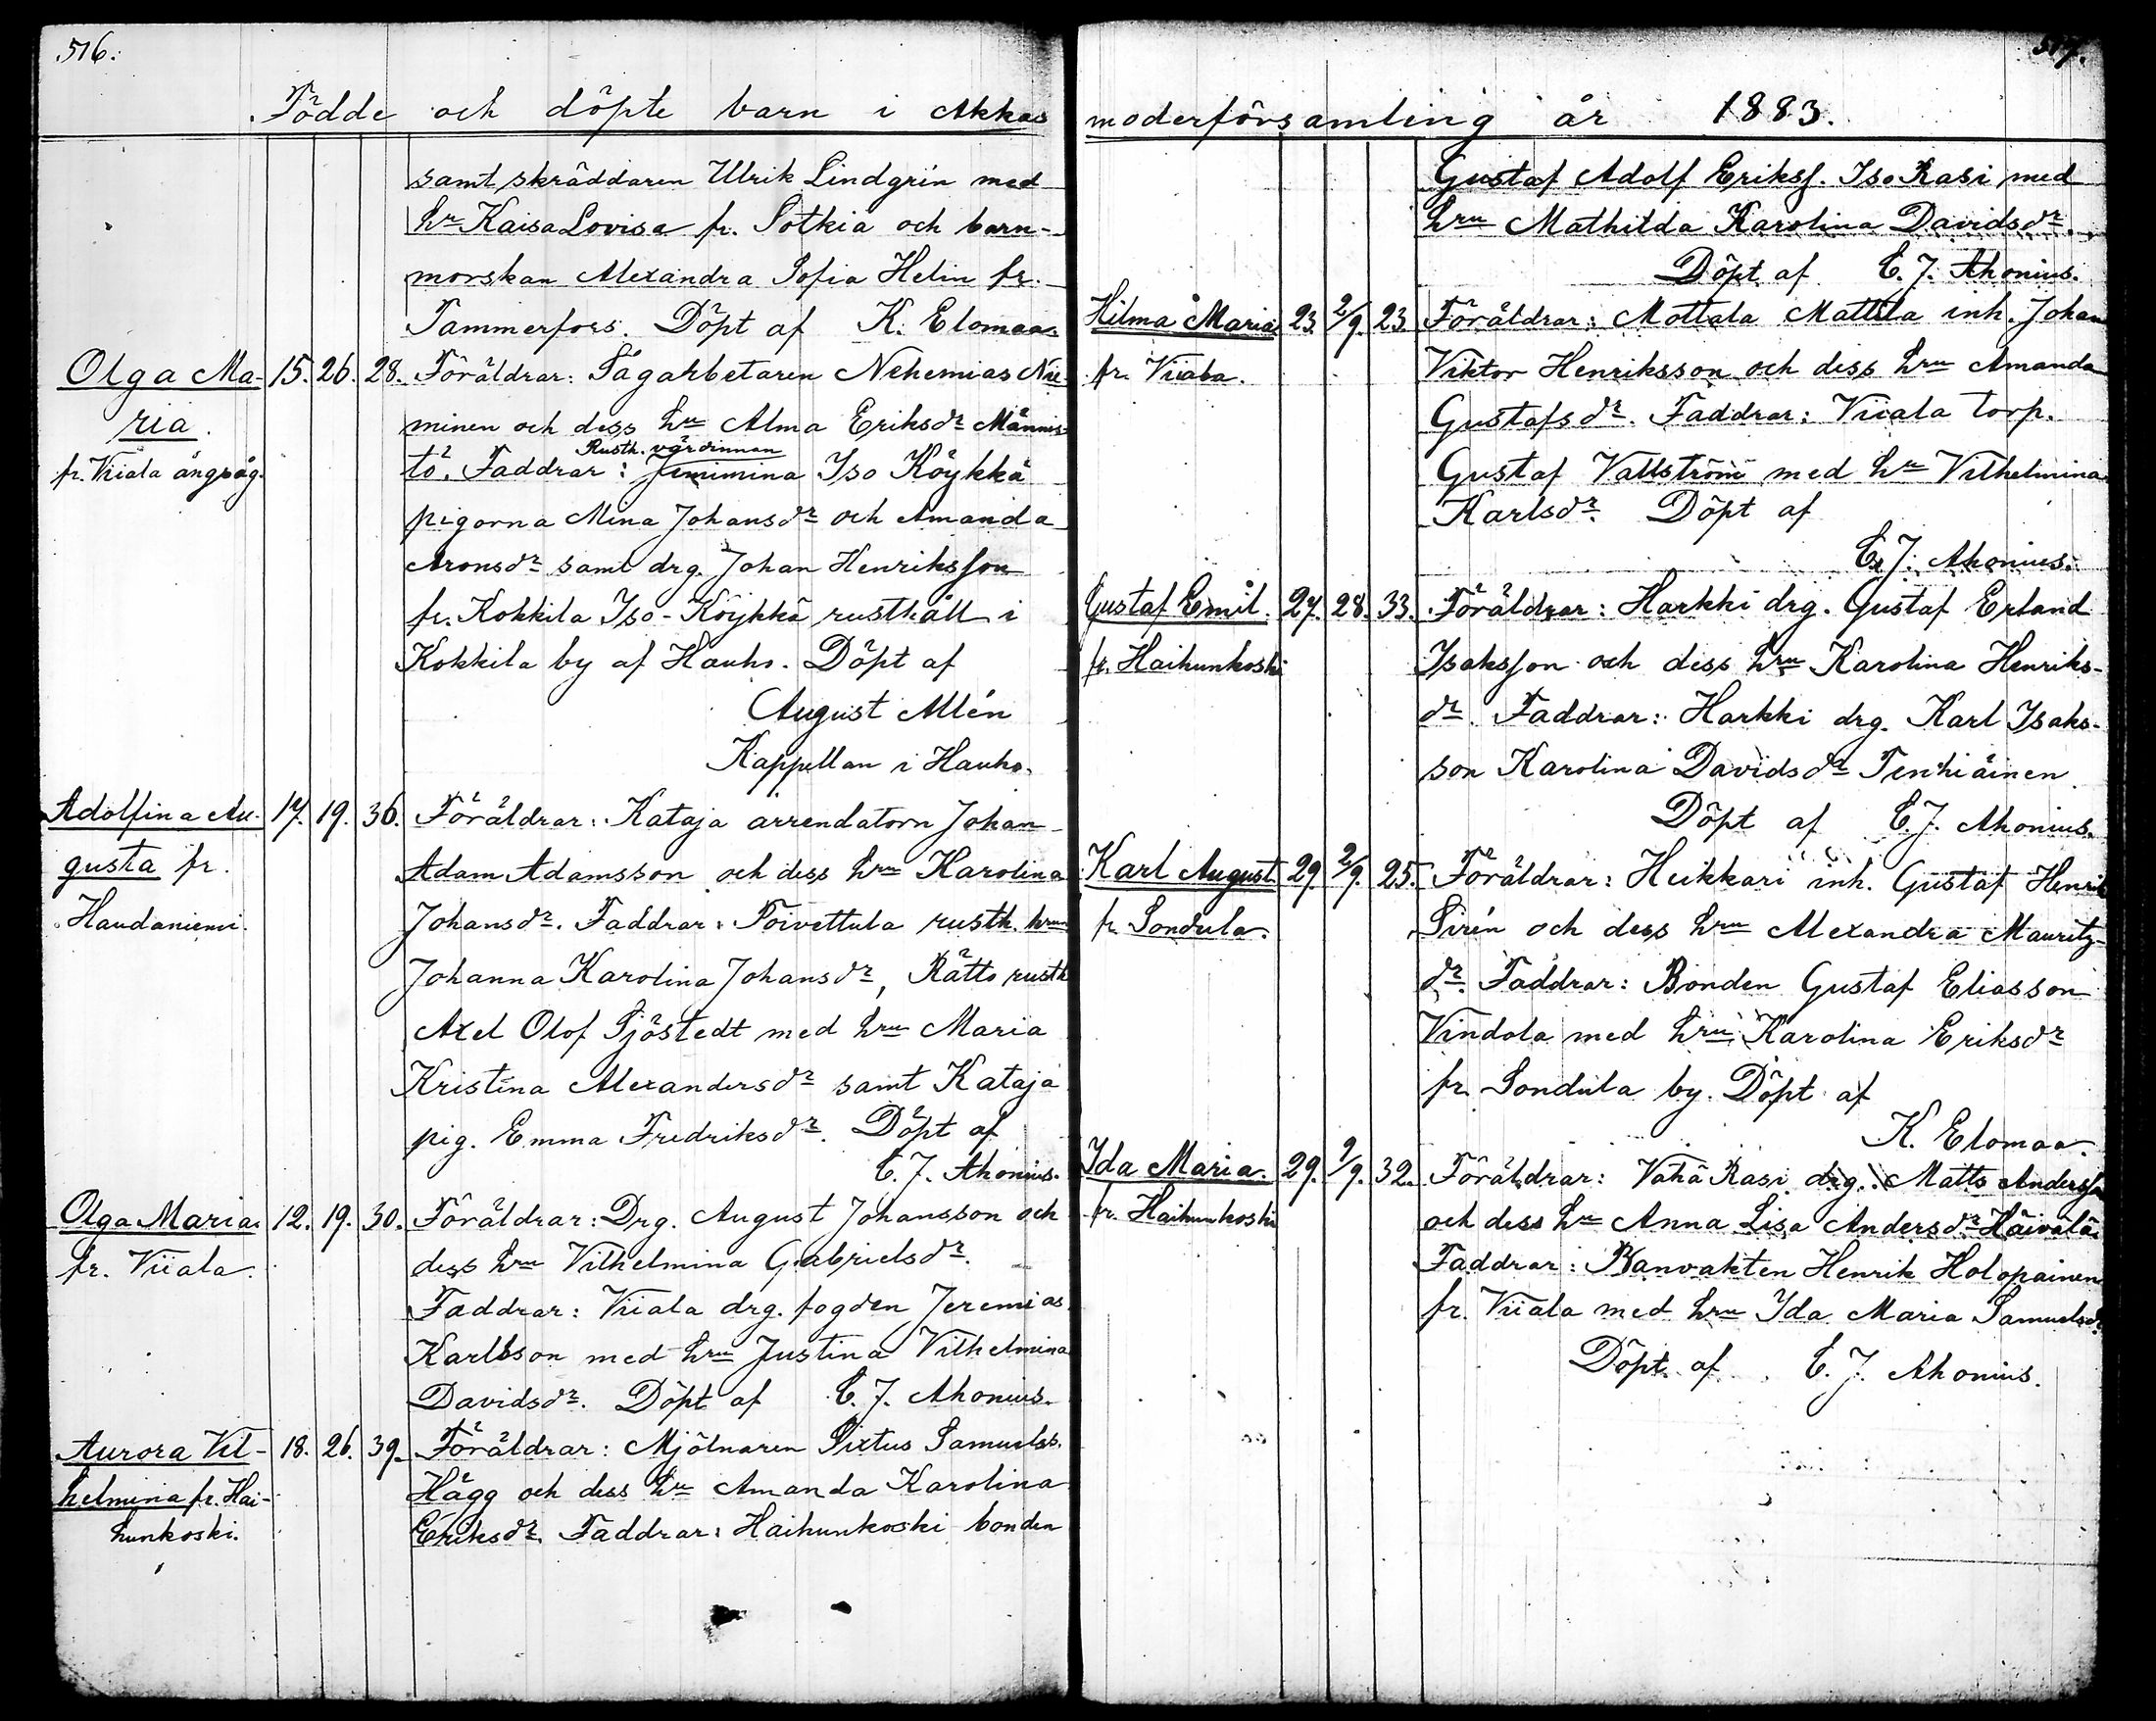 516.
Födde och döpte barn i Akkas
samt skräddaren Ulrik Lindgrén med
hu Kaisa Lovisa fr. Sotkia och barn-
morskan Alexandra Sofia Helin fr.
Tammerfors. Döpt af K. Elomaa.
Olga Ma- 15. 26. 28. Föräldrar: Sågarbetaren Nehemias Nie-
ria. minen och dess hu Alma Eriksdr Männis-
Rusth. värdinnan
fr. Viiala ångsåg. tö. Faddrar: Jemimina Iso Köykkä
pigorna Mina Johansdr och Amanda
Aronsdr samt drg. Johan Henriksson
fr. Kokkila Iso-Köykkä rusthåll i
Kokkila by af Hauho. Döpt af
August Allén
Kappellan i Hauho.
Adolfina Au- 17. 19. 36. Föräldrar: Kataja arrendatorn Johan
gusta fr. Adam Adamsson och dess hru Karolina
Haudaniemi. Johansdr. Faddrar: Toivettula rusth. hrun
Johanna Karolina Johansdr, Rättö rusth
Axel Olof Sjöstedt med hru Maria
Kristina Alexandersdr samt Kataja
pig. Emma Fredriksdr. Döpt af
C. J. Ahonius.
Olga Maria. 12. 19. 30. Föräldrar: Drg. August Johansson och
fr. Viiala. dess hru Vilhelmina Gabrielsdr.
Faddrar: Viiala drg. fogden Jeremias
Karlsson med hru Justina Vilhelmina
Davidsdr. Döpt af C. J. Ahonius.
Aurora Vil- 18. 26. 39. Föräldrar: Mjölnaren Sixtus Samuelss.
helmina fr. Hai- Hägg och dess hu Amanda Karolina
hunkoski. Eriksdr. Faddrar: Haihunkoski bonden
517.
moderförsamling år 1883.
Gustaf Adolf Erikss. Iso Rasi med
hru Mathilda Karolina Davidsdr.
Döpt af C. J. Ahonius.
Hilma Maria 23. 2/9. 23. Föräldrar: Mottala Mattila inh. Johan
fr. Viiala. Viktor Henriksson och dess hru Amanda
Gustafsdr. Faddrar: Viiala torp.
Gustaf Vallström med hu Vilhelmina
Karlsdr. Döpt af
C. J. Ahonius.
Gustaf Emil. 27. 28. 33. Föräldrar: Harkki drg. Gustaf Erland
fr. Haihunkoski Isaksson och dess hru Karolina Henriks-
dr. Faddrar: Harkki drg. Karl Isaks-
son Karolina Davidsdr Tenhiäinen
Döpt af C. J. Ahonius.
Karl August 29. 2/9. 25. Föräldrar: Heikkari inh. Gustaf Henrik
fr. Sondula. Sirén och dess hru Alexandra Mauritz-
dr. Faddrar: Bonden Gustaf Eliasson
Vindola med hru Karolina Eriksdr
fr. Sondula by. Döpt af
K. Elomaa.
Ida Maria. 29. 2/9. 32. Föräldrar: Vähä Rasi drg. Matts Andersson
fr. Haihunkoski och dess hu Anna Lisa Andersdr Häivälä.
Faddrar: Banvakten Henrik Holopainen
fr. Viiala med hru Ida Maria Samuelsdr.
Döpt af C. J. Ahonius.